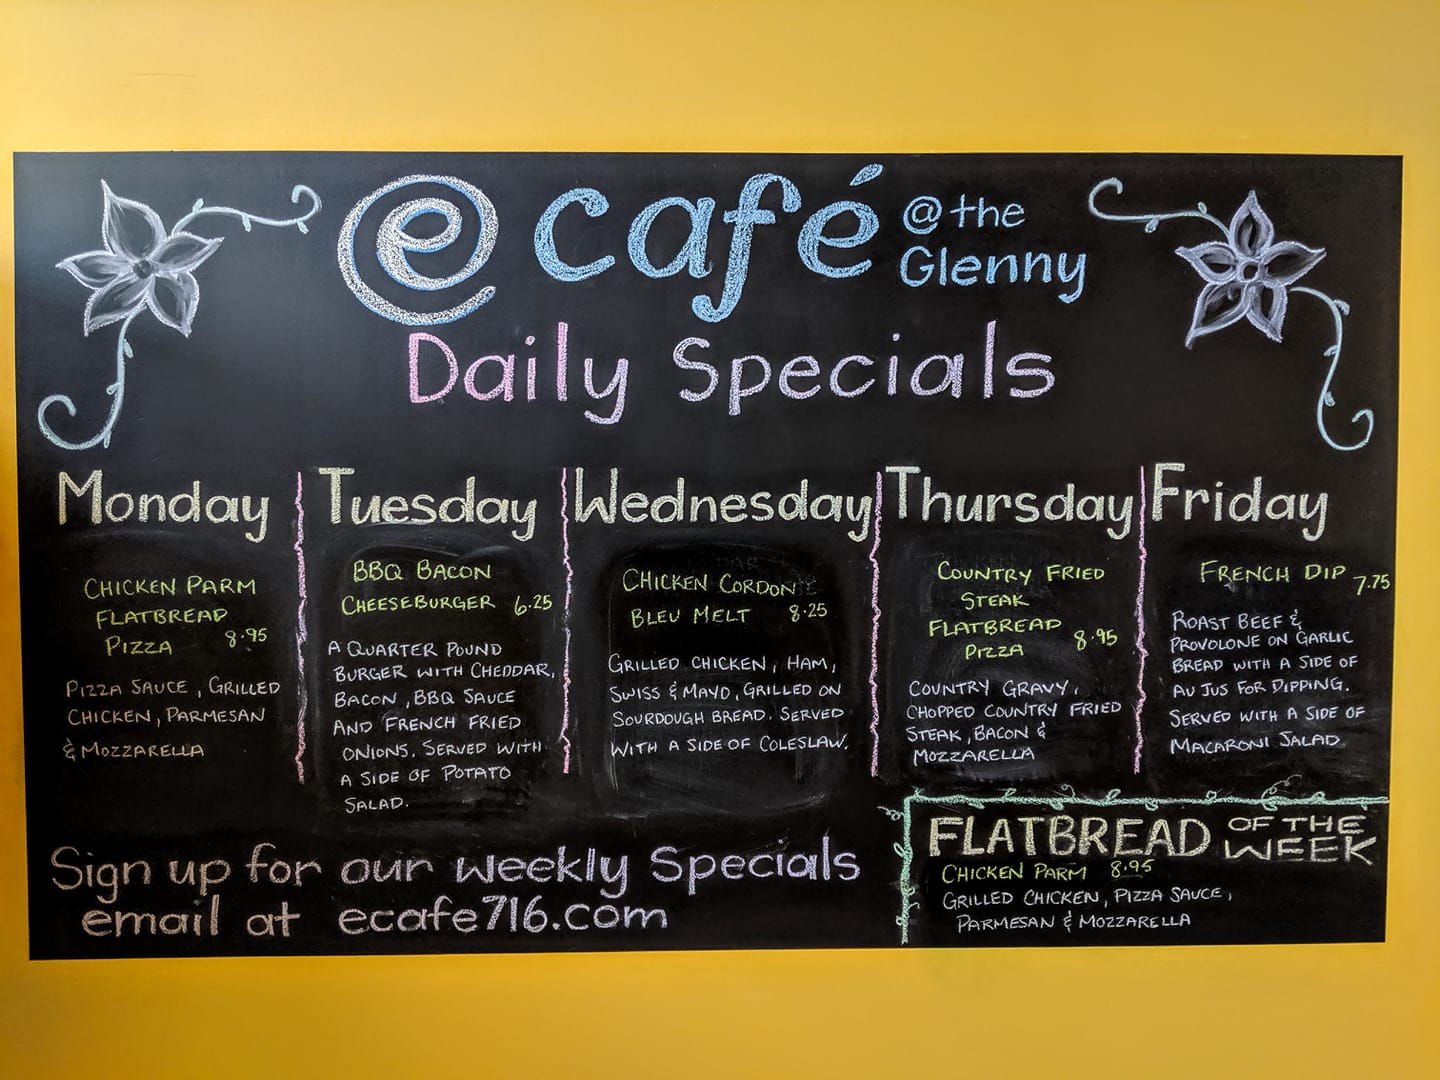 e café @ the
Glenny
Daily Specials
Monday
CHICKEN PARM
FLATBREAD
PIZZA 8.95
PIZZA SAUCE, GRILLED
CHICKEN, PARMESAN
& MOZZARELLA
Tuesday
BBQ BACON
CHEESEBURGER 6.25
A QUARTER POUND
BURGER WITH CHEDDAR,
BACON, BBQ SAUCE
AND FRENCH FRIED
ONIONS. SERVED WITH
A SIDE OF POTATO
SALAD.
Wednesday
CHICKEN CORDON
BLEU MELT 8.25
GRILLED CHICKEN, HAM,
SWISS & MAYO, GRILLED ON
SOURDOUGH BREAD. SERVED
WITH A SIDE OF COLESLAW.
Thursday
COUNTRY FRIED
STEAK
FLATBREAD
PIZZA 8.95
COUNTRY GRAVY,
CHOPPED COUNTRY FRIED
STEAK, BACON &
MOZZARELLA
Friday
FRENCH DIP 7.75
ROAST BEEF &
PROVOLONE ON GARLIC
BREAD WITH A SIDE OF
AU JUS FOR DIPPING.
SERVED WITH A SIDE OF
MACARONI SALAD
Sign up for our weekly Specials
email at ecafe716.com
FLATBREAD OF THE WEEK
CHICKEN PARM 8.95
GRILLED CHICKEN, PIZZA SAUCE,
PARMESAN & MOZZARELLA